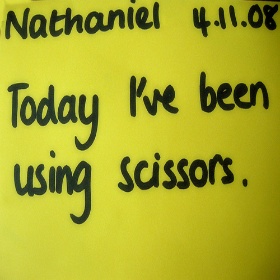 Nathaniel 4.11.08
Today I've been
using scissors.